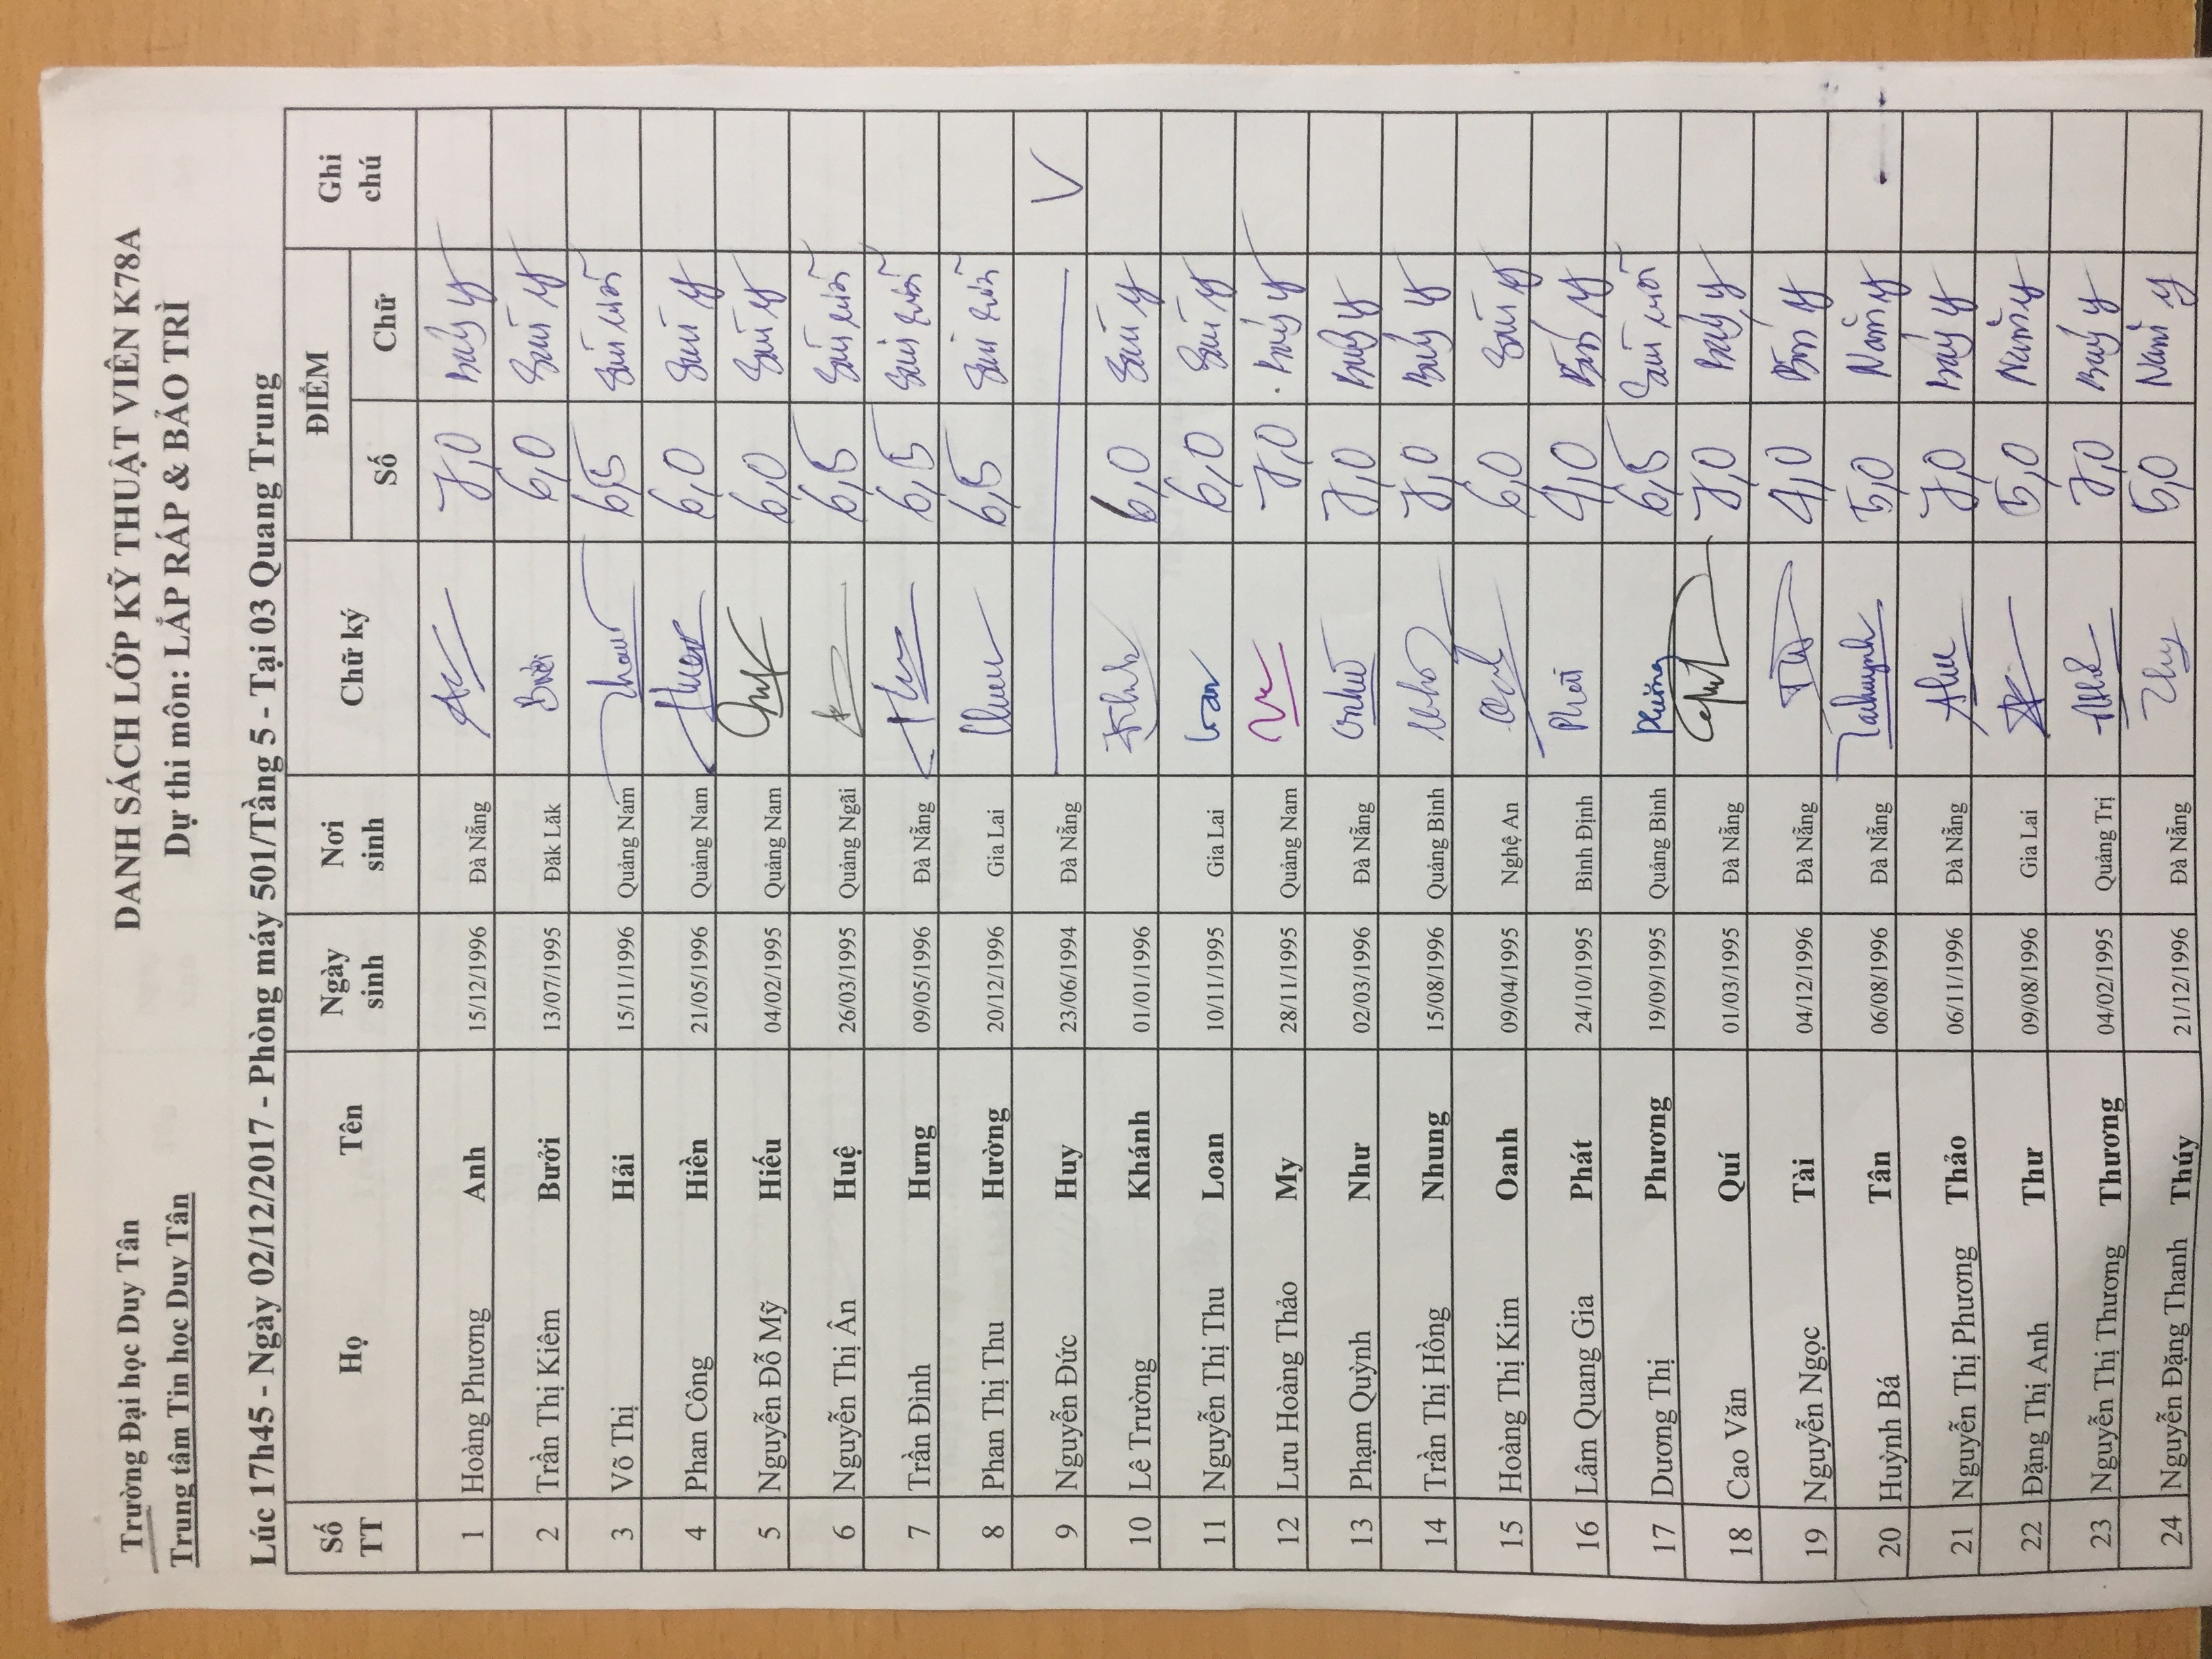 Trường Đại học Duy Tân
Trung tâm Tin học Duy Tân
DANH SÁCH LỚP KỸ THUẬT VIÊN K78A
Dự thi môn: LẮP RÁP & BẢO TRÌ
Lúc 17h45 - Ngày 02/12/2017 - Phòng máy 501/Tầng 5 - Tại 03 Quang Trung
Số TT Họ Tên Ngày sinh Nơi sinh Chữ ký ĐIỂM Ghi chú
Số Chữ
1 Hoàng Phương Anh 15/12/1996 Đà Nẵng 7,0 Bảy y
2 Trần Thị Kiêm Bưởi 13/07/1995 Đăk Lăk Bưởi 6,0 Sáu y
3 Võ Thị Hải 15/11/1996 Quảng Nam 6,5 Sáu rưỡi
4 Phan Công Hiền 21/05/1996 Quảng Nam 6,0 Sáu y
5 Nguyễn Đỗ Mỹ Hiếu 04/02/1995 Quảng Nam 6,0 Sáu y
6 Nguyễn Thị Ân Huệ 26/03/1995 Quảng Ngãi 6,5 Sáu rưỡi
7 Trần Đình Hưng 09/05/1996 Đà Nẵng 6,5 Sáu rưỡi
8 Phan Thị Thu Hường 20/12/1996 Gia Lai 6,5 Sáu rưỡi
9 Nguyễn Đức Huy 23/06/1994 Đà Nẵng V
10 Lê Trường Khánh 01/01/1996 6,0 Sáu y
11 Nguyễn Thị Thu Loan 10/11/1995 Gia Lai Loan 6,0 Sáu y
12 Lưu Hoàng Thảo My 28/11/1995 Quảng Nam 7,0 Bảy y
13 Phạm Quỳnh Như 02/03/1996 Đà Nẵng 7,0 Bảy y
14 Trần Thị Hồng Nhung 15/08/1996 Quảng Bình 7,0 Bảy y
15 Hoàng Thị Kim Oanh 09/04/1995 Nghệ An 6,0 Sáu y
16 Lâm Quang Gia Phát 24/10/1995 Bình Định Phát 4,0 Bốn y
17 Dương Thị Phương 19/09/1995 Quảng Bình Phương 6,5 Sáu rưỡi
18 Cao Văn Quí 01/03/1995 Đà Nẵng 7,0 Bảy y
19 Nguyễn Ngọc Tài 04/12/1996 Đà Nẵng 4,0 Bốn y
20 Huỳnh Bá Tân 06/08/1996 Đà Nẵng 5,0 Năm y
21 Nguyễn Thị Phương Thảo 06/11/1996 Đà Nẵng 7,0 Bảy y
22 Đặng Thị Anh Thư 09/08/1996 Gia Lai 5,0 Năm y
23 Nguyễn Thị Thương Thương 04/02/1995 Quảng Trị 7,0 Bảy y
24 Nguyễn Đặng Thanh Thúy 21/12/1996 Đà Nẵng Thuy 5,0 Năm y